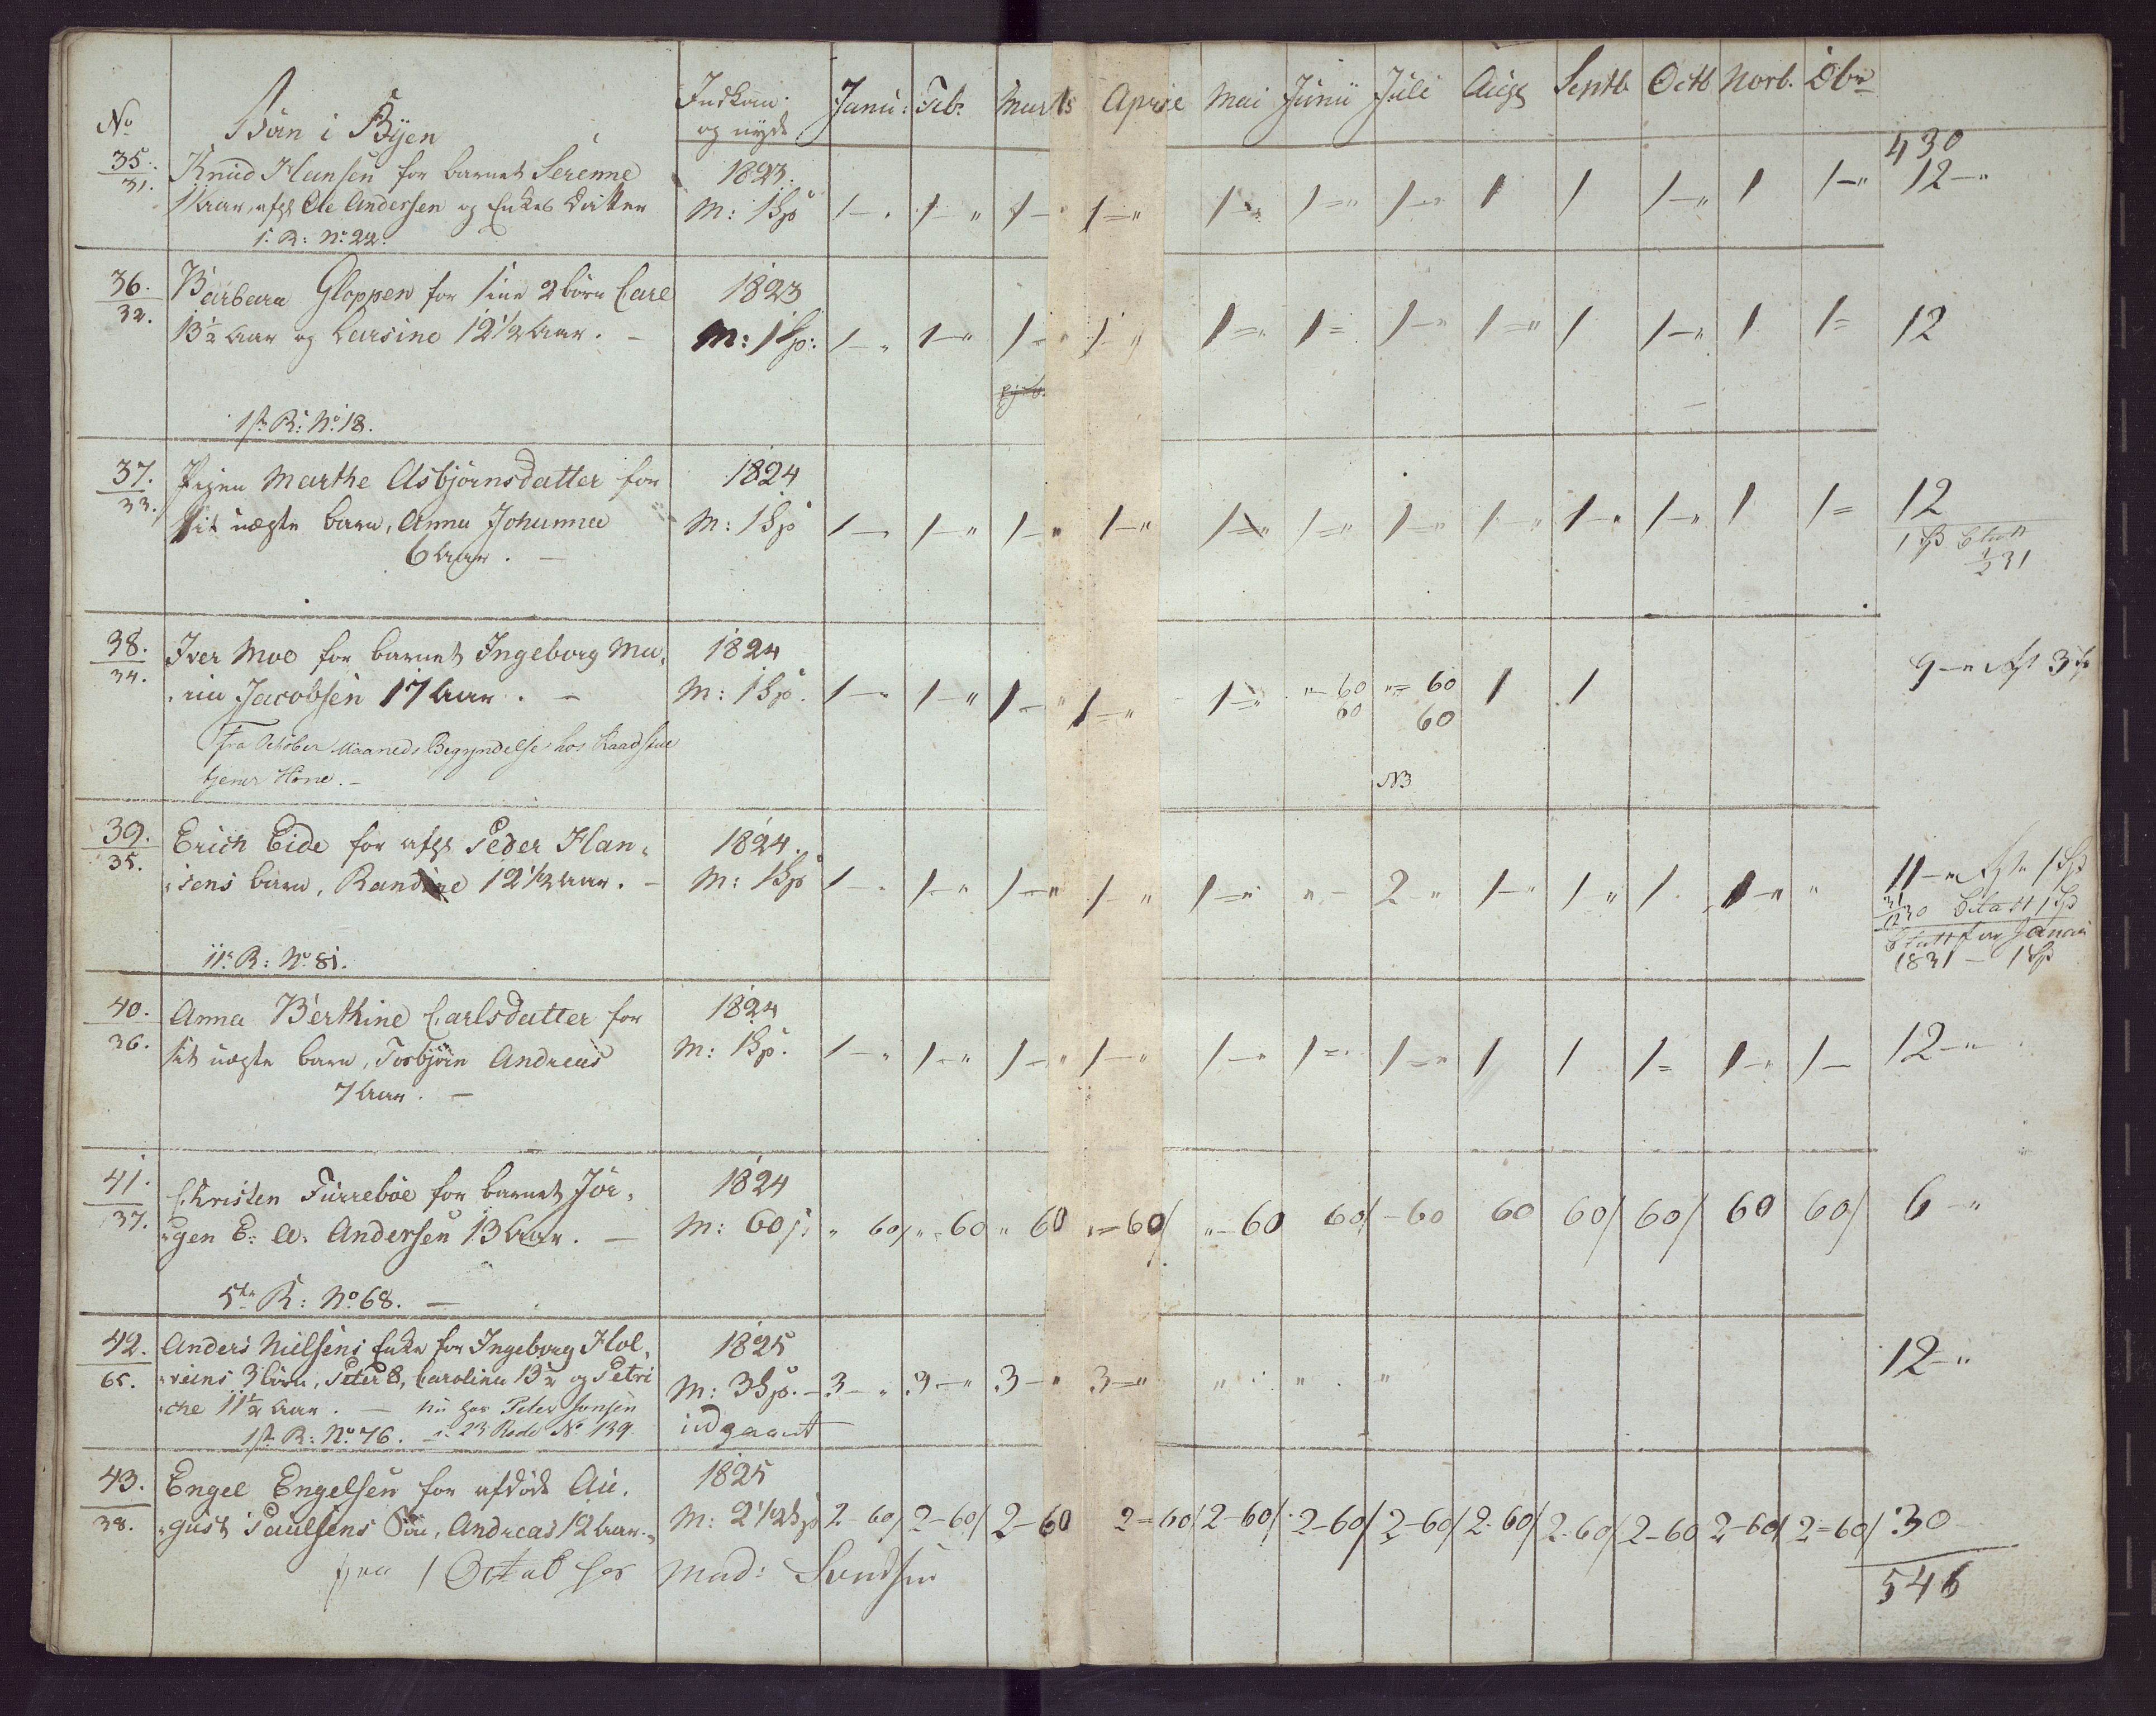 No Börn i Byen Indkom: og nyde Janu: Feb: Marts Aprie Mai Junii Juli Augs Septb Octb Novb. Dbr
430
35. Knud Hansen for barnet Serenne 1823.
31. 1 Aar, afg Ole Andersen og Enkes Datter M: 1 Sp 1 – „ 1 – „ 1 – „ 1 – „ 1 – „ 1 – „ 1 – „ 1 1 1 – „ 1 1 – „ 12 – „
1. R: No 22.
36. Barbara Gloppen for sine 2 börn Care 1823
32. 13½ Aar og Larsine 12½ Aar. – M: 1 Sp: 1 – „ 1 – „ 1 – „ 1 – „ 1 = „ 1 = 1 – „ 1 = „ 1 1 – „ 1 1 = 12
1ste R: No 18.
37. Pigen Marthe Asbjörnsdatter for 1824
33. sit uægte barn, Anna Johanna M: 1 Sp 1 – „ 1 – „ 1 – „ 1 – „ 1 – „ 1 = „ 1 – „ 1 – „ 1 – „ 1 – „ 1 1 = 12
6 Aar. – 1 Sp btalt
½ 31
38. Iver Moe for barnet Ingeborg Ma, 1824
34. „rin Jacobsen 17 Aar. – M: 1 Sp. 1 – „ 1 – „ 1 – „ 1 = „ 1 = „ „ – 60 „ = 60 1 1 9 – „ 3
60 60
fra October Maaneds Begyndelse hos Raadstue
tjener Hone. – NB
39. Erich Eide for afg Peder Han, 1824.
35. „sens barn, Randine 12½ Aar. – M: 1 Sp 1 – „ 1 – „ 1 – „ 1 – „ 1 = „ „ – 2 – „ 1 – „ 1 – „ 1 1 – „ „ 11 – „ 1 Sp
31/12 30 betalt 1 Sp
btalt for Januar
11te R: No 81. 1831 – 1 Sp
40. Anna Berthine Carlsdatter for 1824
36. sit uægte barn, Torbjörn Andreas M: 1 Sp. 1 – „ 1 – „ 1 – „ 1 – „ 1 – „ 1 = „ 1 – „ 1 1 1 = 1 – „ 1 – 12 – „
7 Aar. –
41. Christen Furreböe for barnet Jör, 1824
37. „gen E: A. Andersen 13 Aar. – M: 60 s: „ 60 „ = 60 „ 60 „ = 60 „ – 60 60 – 60 60 60 60 60 60 6 – „
5te R: No 68. –
42. Anders Nielsens Enke for Ingeborg Hol, 1825
65. 3 börn, Peter 8, Carolina 13½ og Petri M: 3 Sp. – 3 – „ 3 – „ 3 – „ 3 – „ „ „ „ 12 – „
„che 11½ Aar. – nu hos Peter Jonsen udgaaet
1ste R: No 76. – i 23 Rode No 139
43. Engel Engelsen for afdöde Au, 1825
38. „gust Paulsens Sön, Andreas 12 Aar. – M: 2½ Sp 2 – 60 2 – 60 2 – 60 2 = 60 2 – 60 2 – 60 2 – 60 2 – 60 2 – 60 2 – 60 2 – 60 2 = 60 30
fra 1 Octob hos Mad:
546